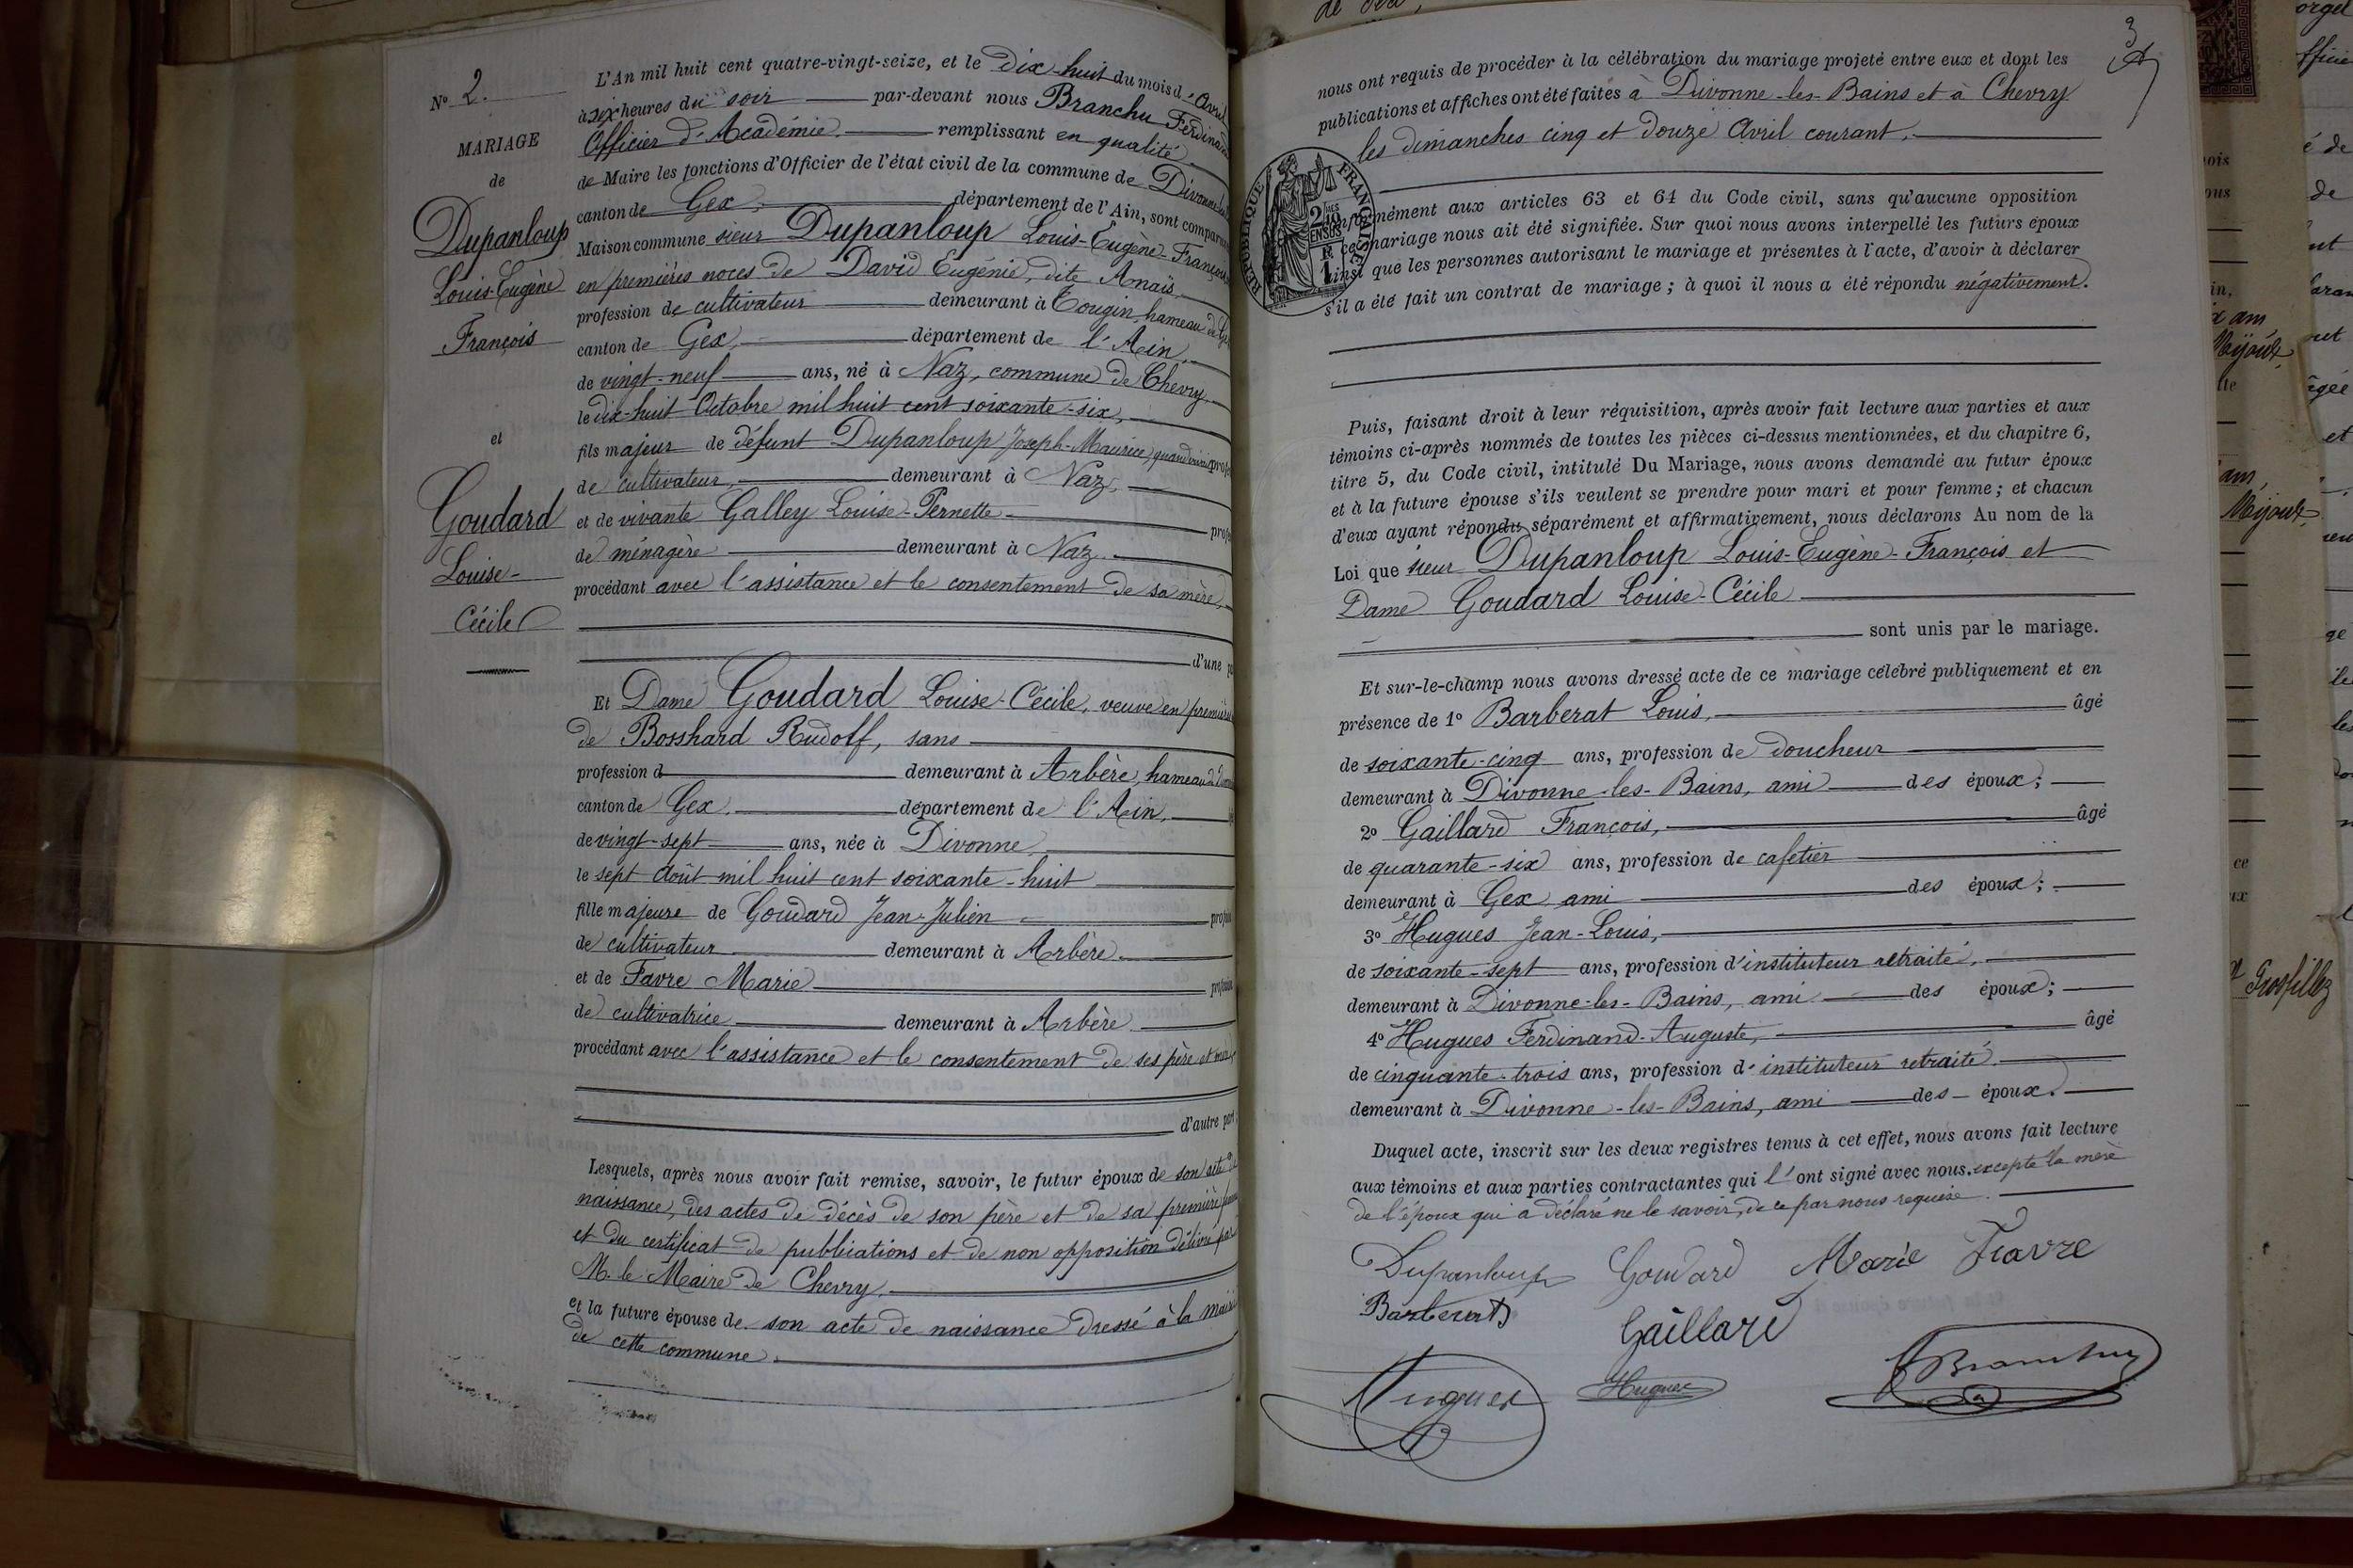 N° 2.
MARIAGE
de
Dupanloup
Louis-Eugène
François
et
Goudard
Louise-
Cécile
L'An mil huit cent quatre-vingt-seize, et le dix-huit du mois d'Avril
à six heures du soir par-devant nous Branchu Ferdinand
Officier d'Académie, remplissant en qualité
de Maire les fonctions d'Officier de l'état civil de la commune de Divonne
canton de Gex, département de l'Ain, sont comparus
Maison commune sieur Dupanloup Louis-Eugène-François
en premières noces de David Eugénie, dite Anaïs,
profession de cultivateur demeurant à Tougin, hameau de
canton de Gex, département de l'Ain,
de vingt-neuf ans, né à Naz, commune de Chevry,
le dix-huit Octobre mil huit cent soixante-six,
fils majeur de défunt Dupanloup Joseph-Maurice, quand vivait
de cultivateur, demeurant à Naz,
et de vivante Galley Louise-Pernette
de ménagère demeurant à Naz.
procédant avec l'assistance et le consentement de sa mère,
d'une
Et Dame Goudard Louise-Cécile, veuve en premières
de Bosshard Rudolf, sans
profession d demeurant à Arbère, hameau de
canton de Gex, département de l'Ain,
de vingt-sept ans, née à Divonne,
le sept Août mil huit cent soixante-huit
fille majeure de Goudard Jean-Julien
de cultivateur demeurant à Arbère.
et de Favre Marie
de cultivatrice demeurant à Arbère
procédant avec l'assistance et le consentement de ses père et mère
d'autre part
Lesquels, après nous avoir fait remise, savoir, le futur époux de son acte de
naissance, des actes de décès de son père et de sa première femme
et du certificat de publications et de non opposition délivré par
M. le Maire de Chevry,
et la future épouse de son acte de naissance dressé à la mairie
de cette commune.
3
nous ont requis de procéder à la célébration du mariage projeté entre eux et dont les
publications et affiches ont été faites à Divonne-les-Bains et à Chevry
les dimanches cinq et douze Avril courant.
RÉPUBLIQUE FRANÇAISE
conformément aux articles 63 et 64 du Code civil, sans qu'aucune opposition
à ce mariage nous ait été signifiée. Sur quoi nous avons interpellé les futurs époux
ainsi que les personnes autorisant le mariage et présentes à l'acte, d'avoir à déclarer
s'il a été fait un contrat de mariage ; à quoi il nous a été répondu négativement.
Puis, faisant droit à leur réquisition, après avoir fait lecture aux parties et aux
témoins ci-après nommés de toutes les pièces ci-dessus mentionnées, et du chapitre 6,
titre 5, du Code civil, intitulé Du Mariage, nous avons demandé au futur époux
et à la future épouse s'ils veulent se prendre pour mari et pour femme ; et chacun
d'eux ayant répondu séparément et affirmativement, nous déclarons Au nom de la
Loi que sieur Dupanloup Louis-Eugène-François et
Dame Goudard Louise-Cécile
sont unis par le mariage.
Et sur-le-champ nous avons dressé acte de ce mariage célébré publiquement et en
présence de 1° Barberat Louis, âgé
de soixante-cinq ans, profession de doucheur
demeurant à Divonne-les-Bains, ami des époux ;
2° Gaillard François, âgé
de quarante-six ans, profession de cafetier
demeurant à Gex ami des époux ;
3° Hugues Jean-Louis,
de soixante-sept ans, profession d'instituteur retraité,
demeurant à Divonne-les-Bains, ami des époux ;
4° Hugues Ferdinand-Auguste, âgé
de cinquante-trois ans, profession d'instituteur retraité.
demeurant à Divonne-les-Bains, ami des époux.
Duquel acte, inscrit sur les deux registres tenus à cet effet, nous avons fait lecture
aux témoins et aux parties contractantes qui l'ont signé avec nous. excepté la mère
de l'époux qui a déclaré ne le savoir, de ce par nous requise.
Dupanloup Goudard Marie Favre
Barberat
Gaillard
Hugues Hugues FBranchu